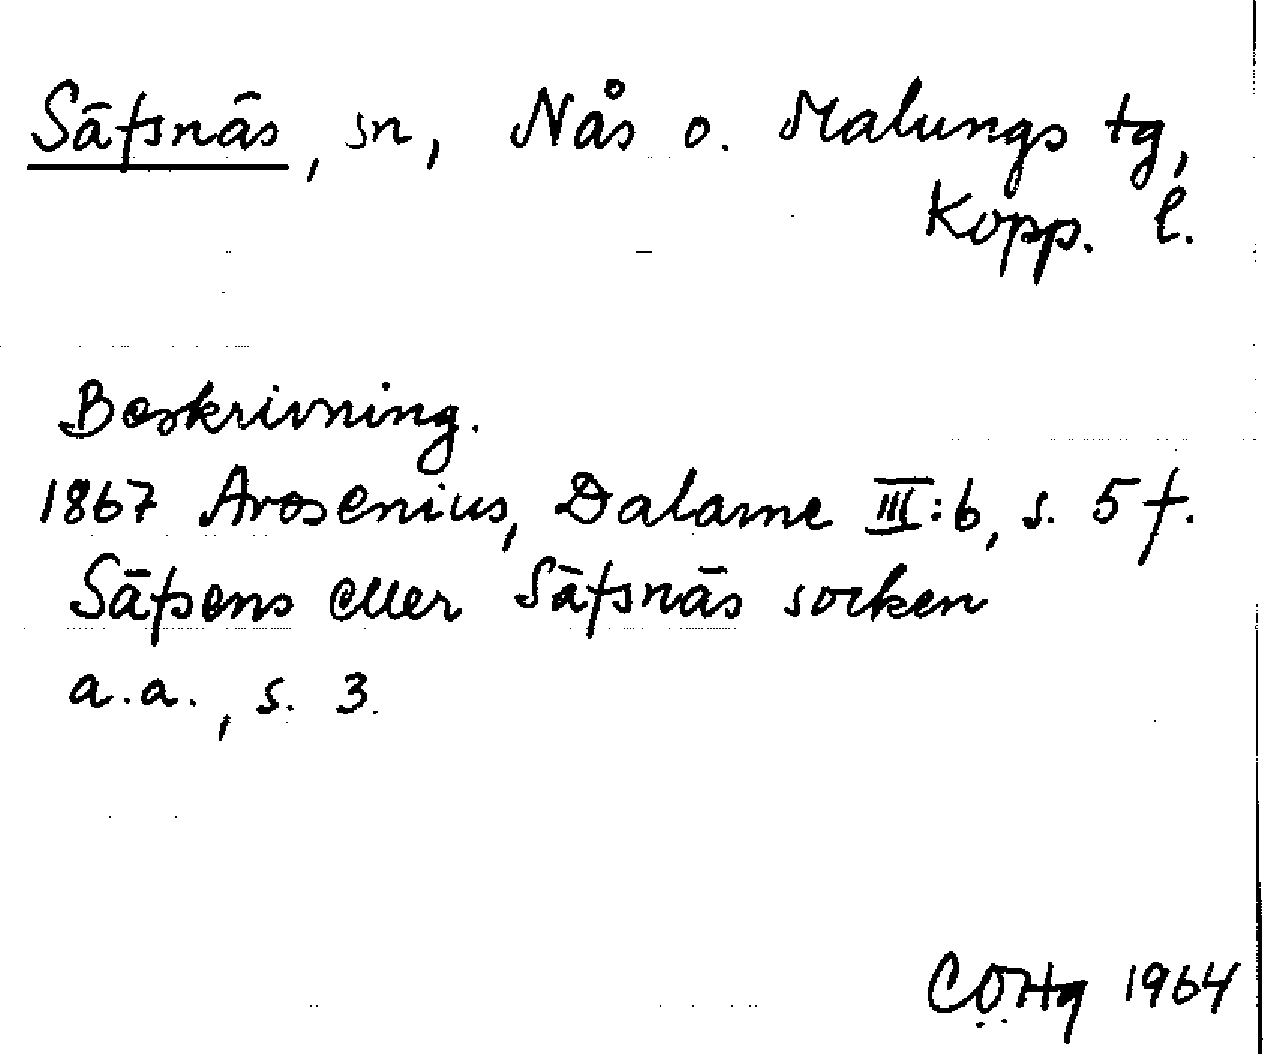 Säfsnäs, sn, Nås o. Malungs tg,
Kopp. l.
Beskrivning.
1867 Arosenius, Dalarne III:6, s. 5 f.
Säfsens eller Säfsnäs socken
a.a., s. 3.
CÖHg 1964